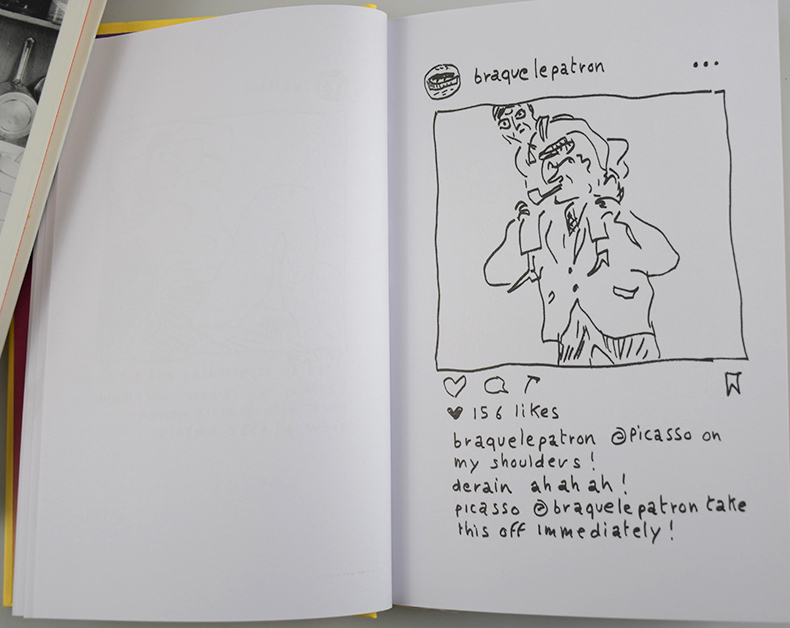 braquelepatron
156 likes
braquelepatron @picasso on
my shoulders!
derain ah ah ah!
picasso @braquelepatron take
this off immediately!